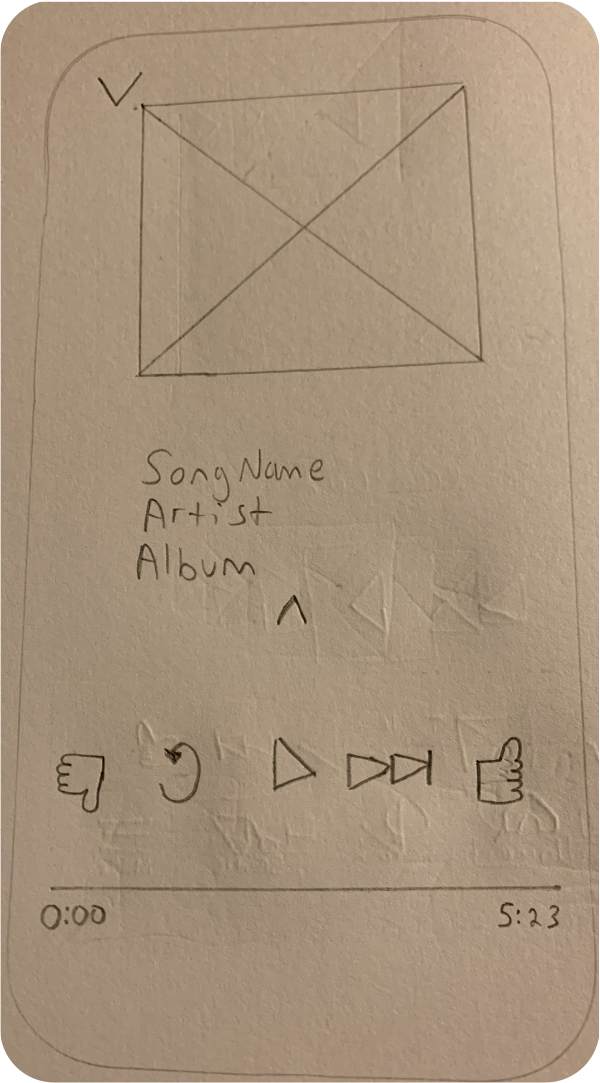 Song Name
Artist
Album
0:00
5:23